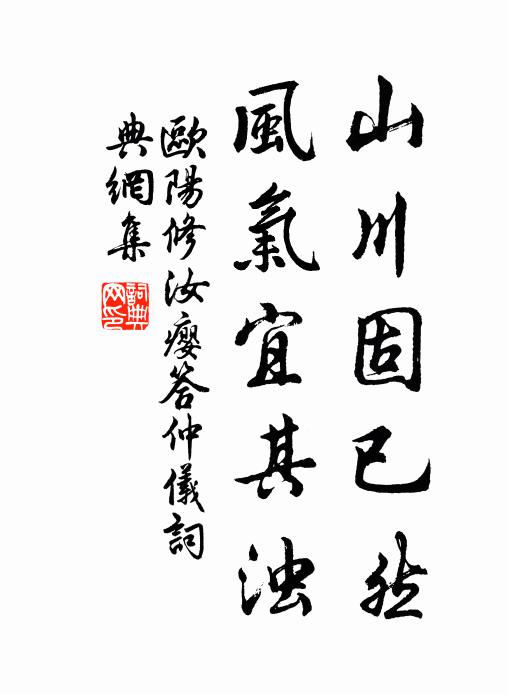 山川固已然
風氣宜其浊
歐陽修汝癭答仲儀詞
典網集
詞典
网印